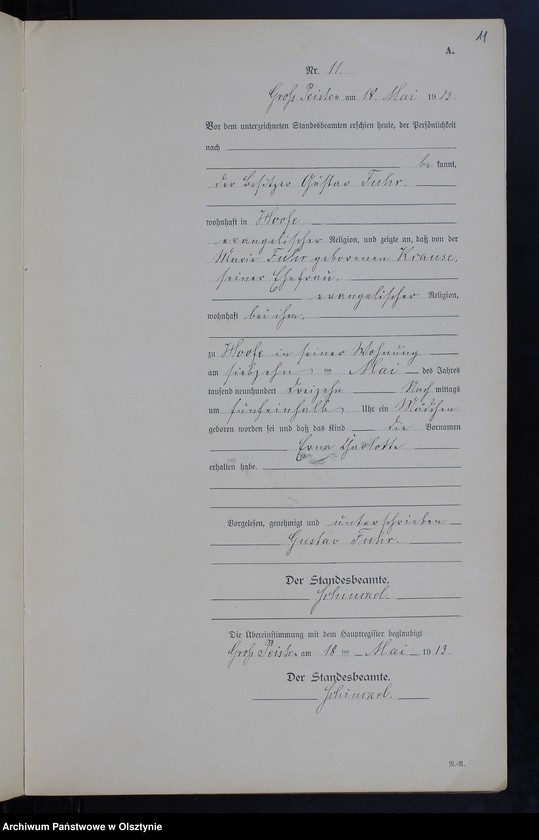 11
A.
Nr. 11.
Groß Peisten am 18 Mai 1913.
Vor dem unterzeichneten Standesbeamten erschien heute, der Persönlichkeit
nach
be kannt,
der Besitzer Gustav Fuhr.
wohnhaft in Woofe
evangelischer Religion, und zeigte an, daß von der
Marie Fuhr geborenen Krause,
seiner Ehefrau.
evangelischer Religion,
wohnhaft bei ihm.
zu Woofe in seiner Wohnung
am siebzehn ten Mai des Jahres
tausend neunhundert dreizehn Nach mittags
um fünfeinhalb Uhr ein Mädchen
geboren worden sei und daß das Kind die Vornamen
Erna Charlotte
erhalten habe.
Vorgelesen, genehmigt und unterschrieben
Gustav Fuhr.
Der Standesbeamte.
Schinkel.
Die Übereinstimmung mit dem Hauptregister beglaubigt
Groß Peisten am 18 ten Mai 1913.
Der Standesbeamte.
Schinkel.
N.-R.
Archiwum Państwowe w Olsztynie